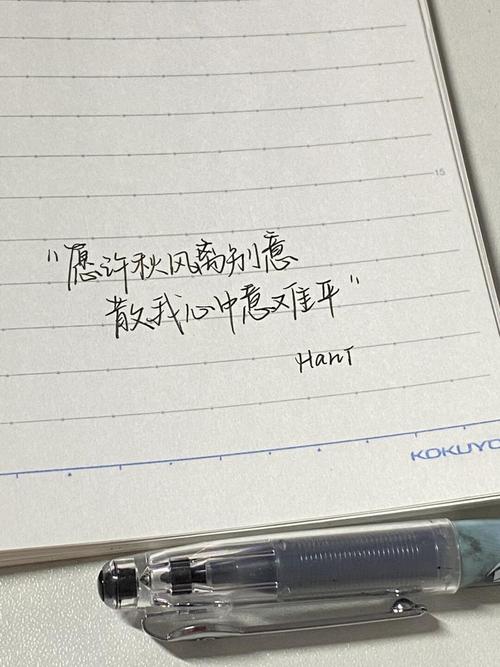 15
"愿许秋风离别意
散我心中意难平"
HanT
KOKUYO